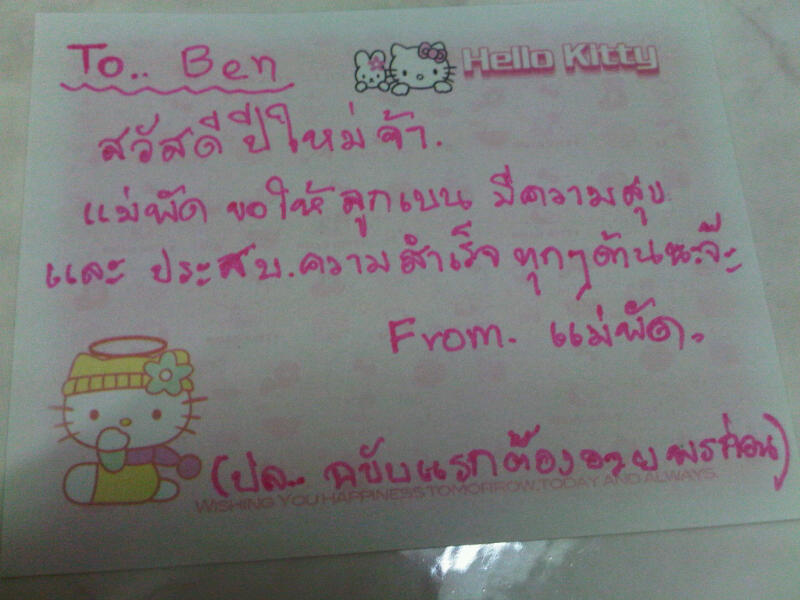 To.. Ben
Hello Kitty
สวัสดีปีใหม่จ้า.
แม่พัด ขอให้ ลูกเบน มีความสุข
และ ประสบ.ความสำเร็จ ทุกๆด้านนะจ๊ะ
From. แม่พัด.
(ปล.. ฉบับแรกต้องอวยพรก่อน)
WISHING YOU HAPPINESS TOMORROW, TODAY AND ALWAYS.